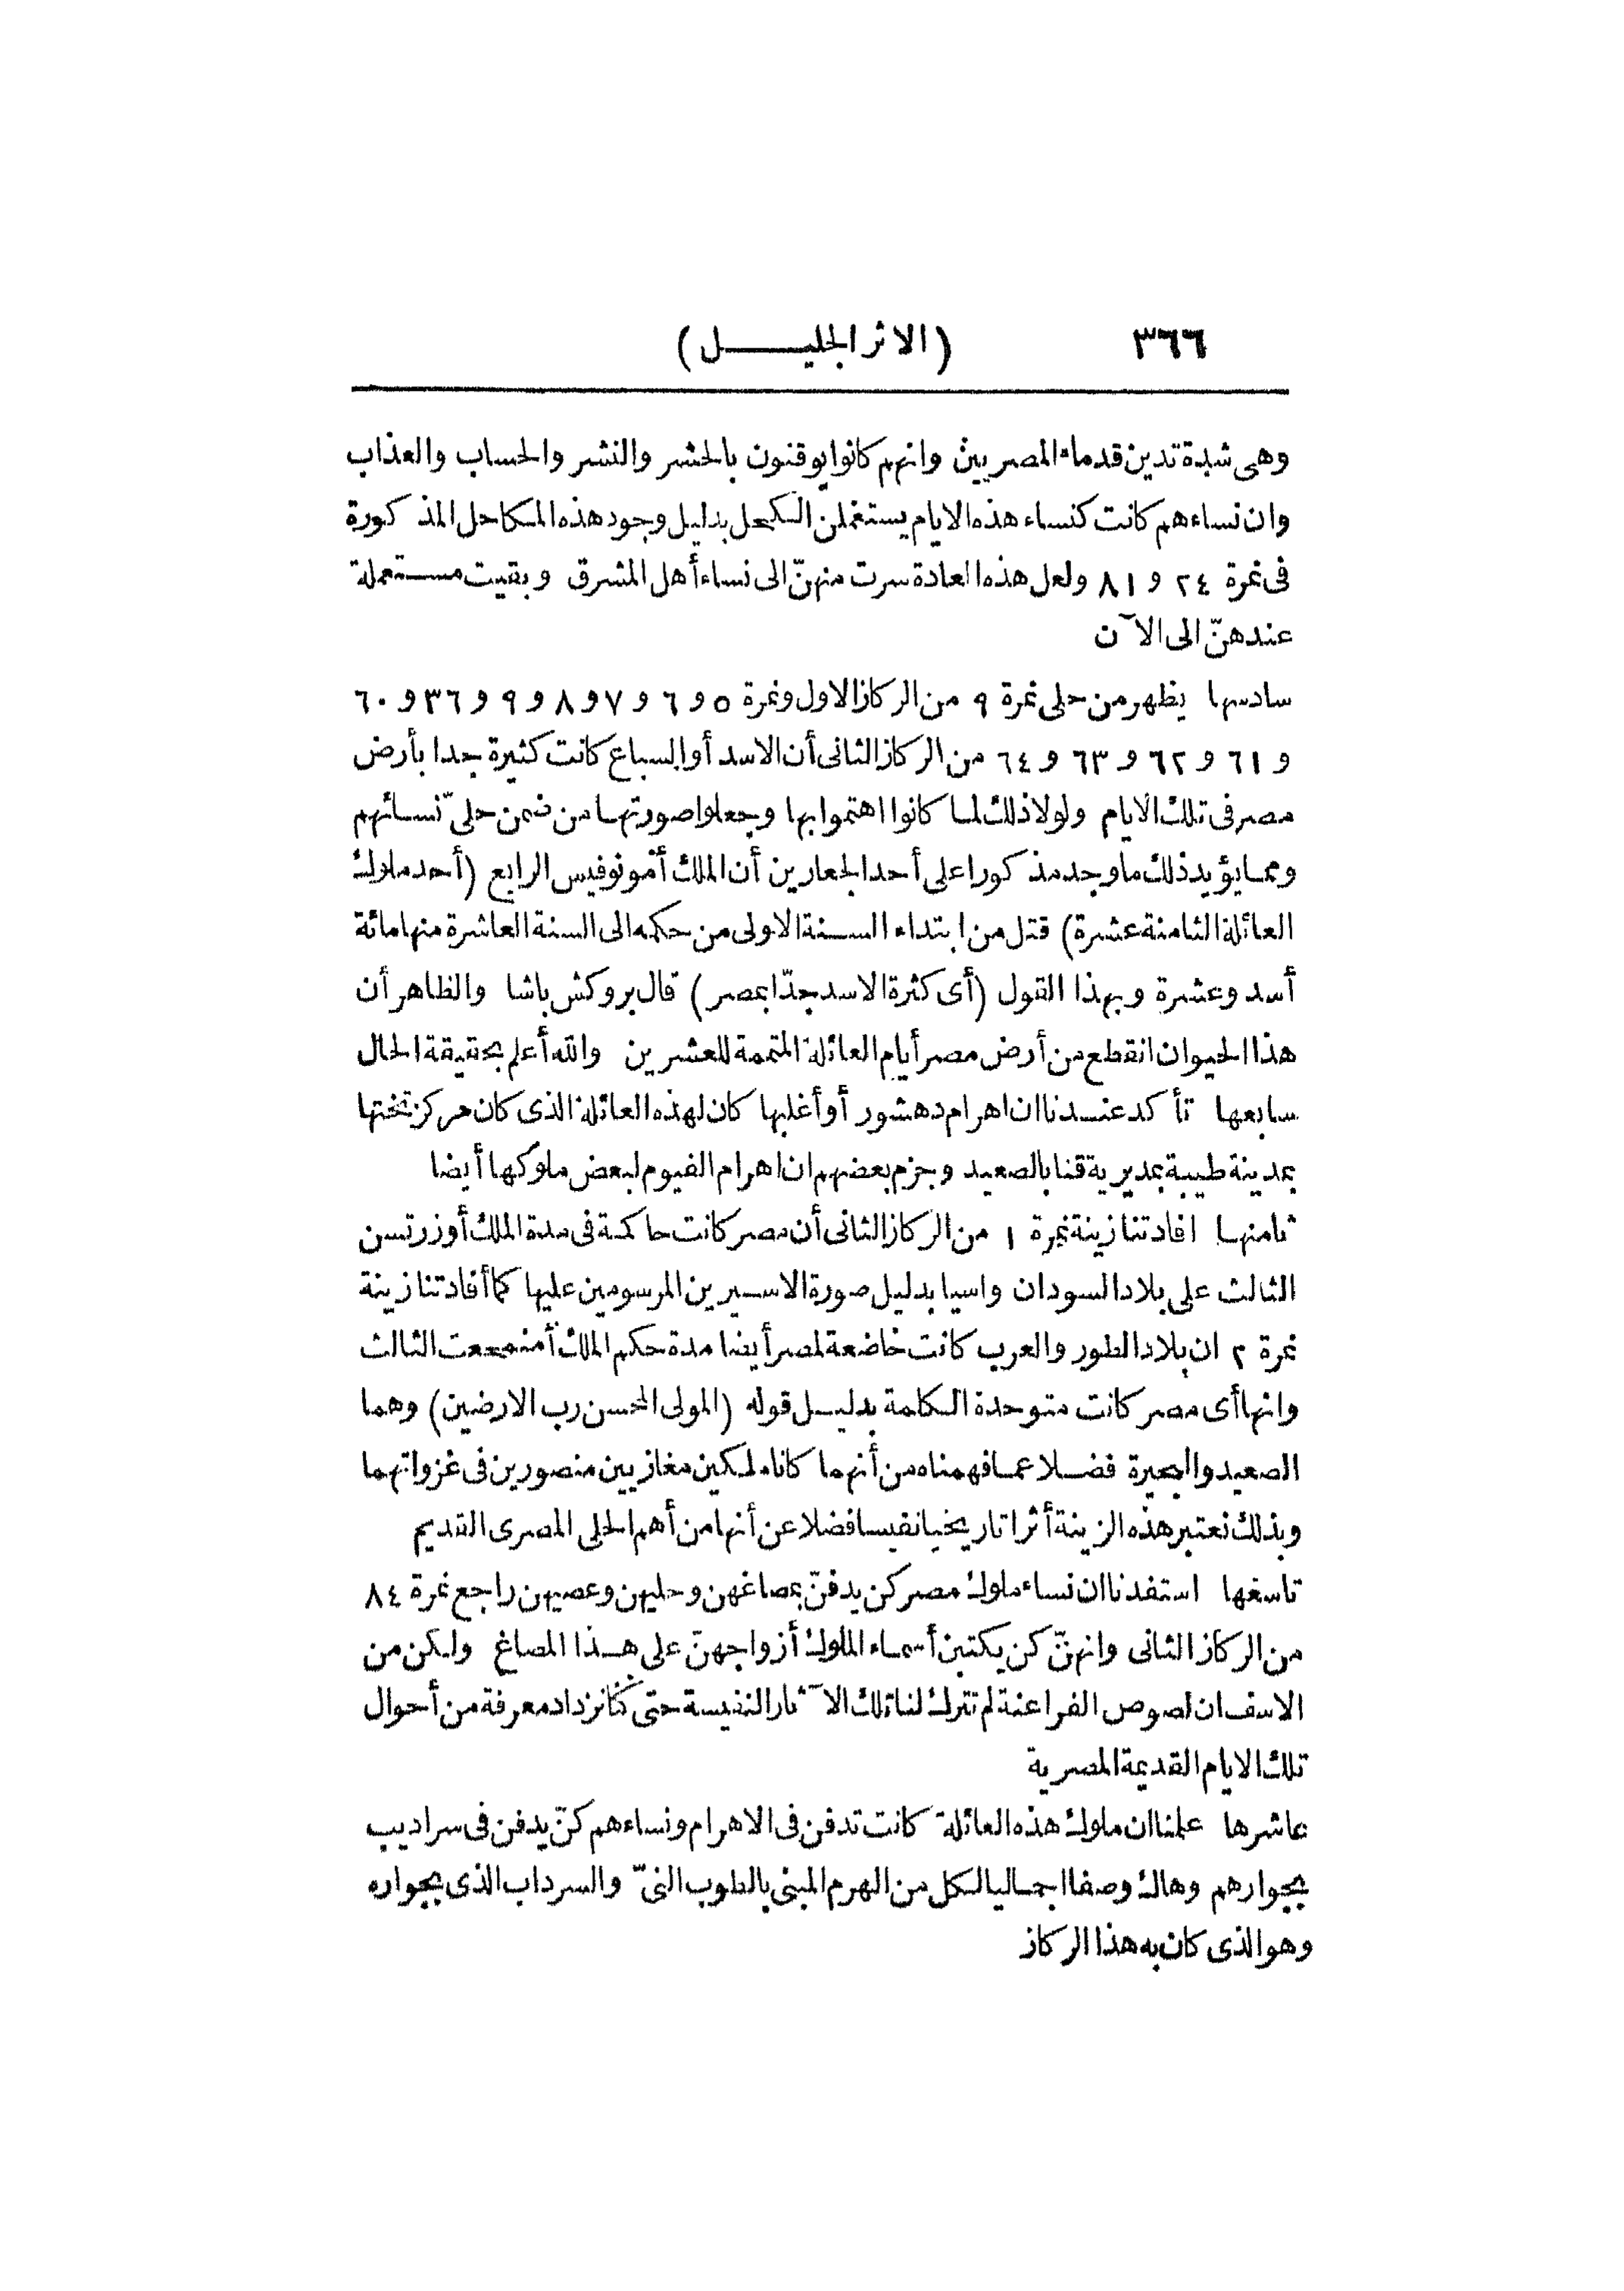 ٣٦٦ (الاثر الجليل)
وهى شدة تدين قدماء المصريين وانهم كانوا يوقنون بالحشر والنشر والحساب والعذاب
وان نساءهم كانت كنساء هذه الايام يستعملن الكحل بدليل وجود هذه المكاحل المذكورة
فى نمرة ٢٤ و ٨١ ولعل هذه العادة سرت منهنّ الى نساء أهل المشرق وبقيت مستعملة
عندهنّ الى الآن
سادسها يظهر من حلى نمرة ٩ من الركاز الاول ونمرة ٥ و ٦ و ٧ و ٨ و ٩ و ٣٦ و ٦٠
و ٦١ و ٦٢ و ٦٣ و ٦٤ من الركاز الثانى أن الاسد أو السباع كانت كثيرة جدا بأرض
مصر فى تلك الايام ولولا ذلك لما كانوا اهتموا بها وجعلوا صورتها من ضمن حلىّ نسائهم
ومما يؤيد ذلك ما وجد مذكورا على أحد الجعارين أن الملك أمونوفيس الرابع (أحد ملوك
العائلة الثامنة عشرة) قتل من ابتداء السنة الاولى من حكمه الى السنة العاشرة منها مائة
أسد وعشرة وبهذا القول (أى كثرة الاسد جدّا بمصر) قال بروكش باشا والظاهر أن
هذا الحيوان انقطع من أرض مصر أيام العائلة المتممة للعشرين والله أعلم بحقيقة الحال
سابعها تأكد عندنا ان اهرام دهشور أو أغلبها كان لهذه العائلة الذى كان مركز تختها
بمدينة طيبة بمديرية قنا بالصعيد وجزم بعضهم ان اهرام الفيوم لبعض ملوكها أيضا
ثامنها افادتنا زينة نمرة ١ من الركاز الثانى أن مصر كانت حاكمة فى مدة الملك أوزرتسن
الثالث على بلاد السودان واسيا بدليل صورة الاسيرين المرسومين عليها كما أفادتنا زينة
نمرة ٢ ان بلاد الطور والعرب كانت خاضعة لمصر أيضا مدة حكم الملك أمنمحعت الثالث
وانها أى مصر كانت متوحدة الكلمة بدليل قوله (المولى المحسن رب الارضين) وهما
الصعيد والبحيرة فضلا عما فهمناه من أنهما كانا ملكين مغازيين منصورين فى غزواتهما
وبذلك نعتبر هذه الزينة أثرا تاريخيا نفيسا فضلا عن أنها من أهم الحلى المصرى القديم
تاسعها استفدنا ان نساء ملوك مصر كن يدفنّ بمصاغهن وحليهن وعصيهن راجع نمرة ٨٤
من الركاز الثانى وانهنّ كن يكتبن أسماء الملوك أزواجهنّ على هذا المصاغ ولكن من
الاسف ان لصوص الفراعنة لم تترك لنا تلك الآثار النفيسة حتى كنا نزداد معرفة من أحوال
تلك الايام القديمة المصرية
عاشرها علمنا ان ملوك هذه العائلة كانت تدفن فى الاهرام ونساءهم كنّ يدفن فى سراديب
بجوارهم وهاك وصفا اجماليا لكل من الهرم المبنى بالطوب النىّ والسرداب الذى بجواره
وهو الذى كان به هذا الركاز